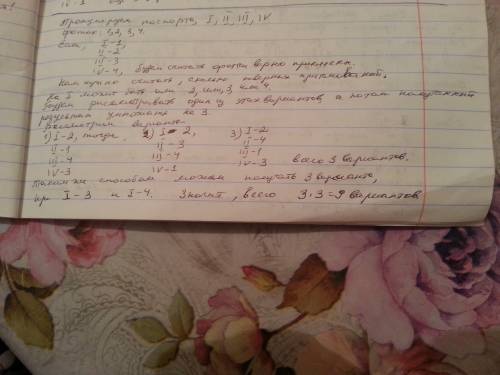 IV-1
Пронумеруем паспорта, I, II, III, IV
фотки: 1, 2, 3, 4.
Если, I-1,
II-2
III-3
IV-4, будем считать фотки верно приклеены.
Нам нужно считать, сколько неверных приклеиваний.
На I может быть или 2, или, 3 или 4.
Будем рассматривать один из этих вариантов а потом полученный
результат умножать на 3.
Рассмотрим варианты
1) I-2, тогда, 2) I-2, 3) I-2
II-1 II-3 II-4
III-4 III-4 III-1
IV-3 IV-1 IV-3 всего 3 вариантов.
Таким же способом можем получать 3 варианта,
пр I-3 и I-4. Значит, всего 3·3=9 вариантов